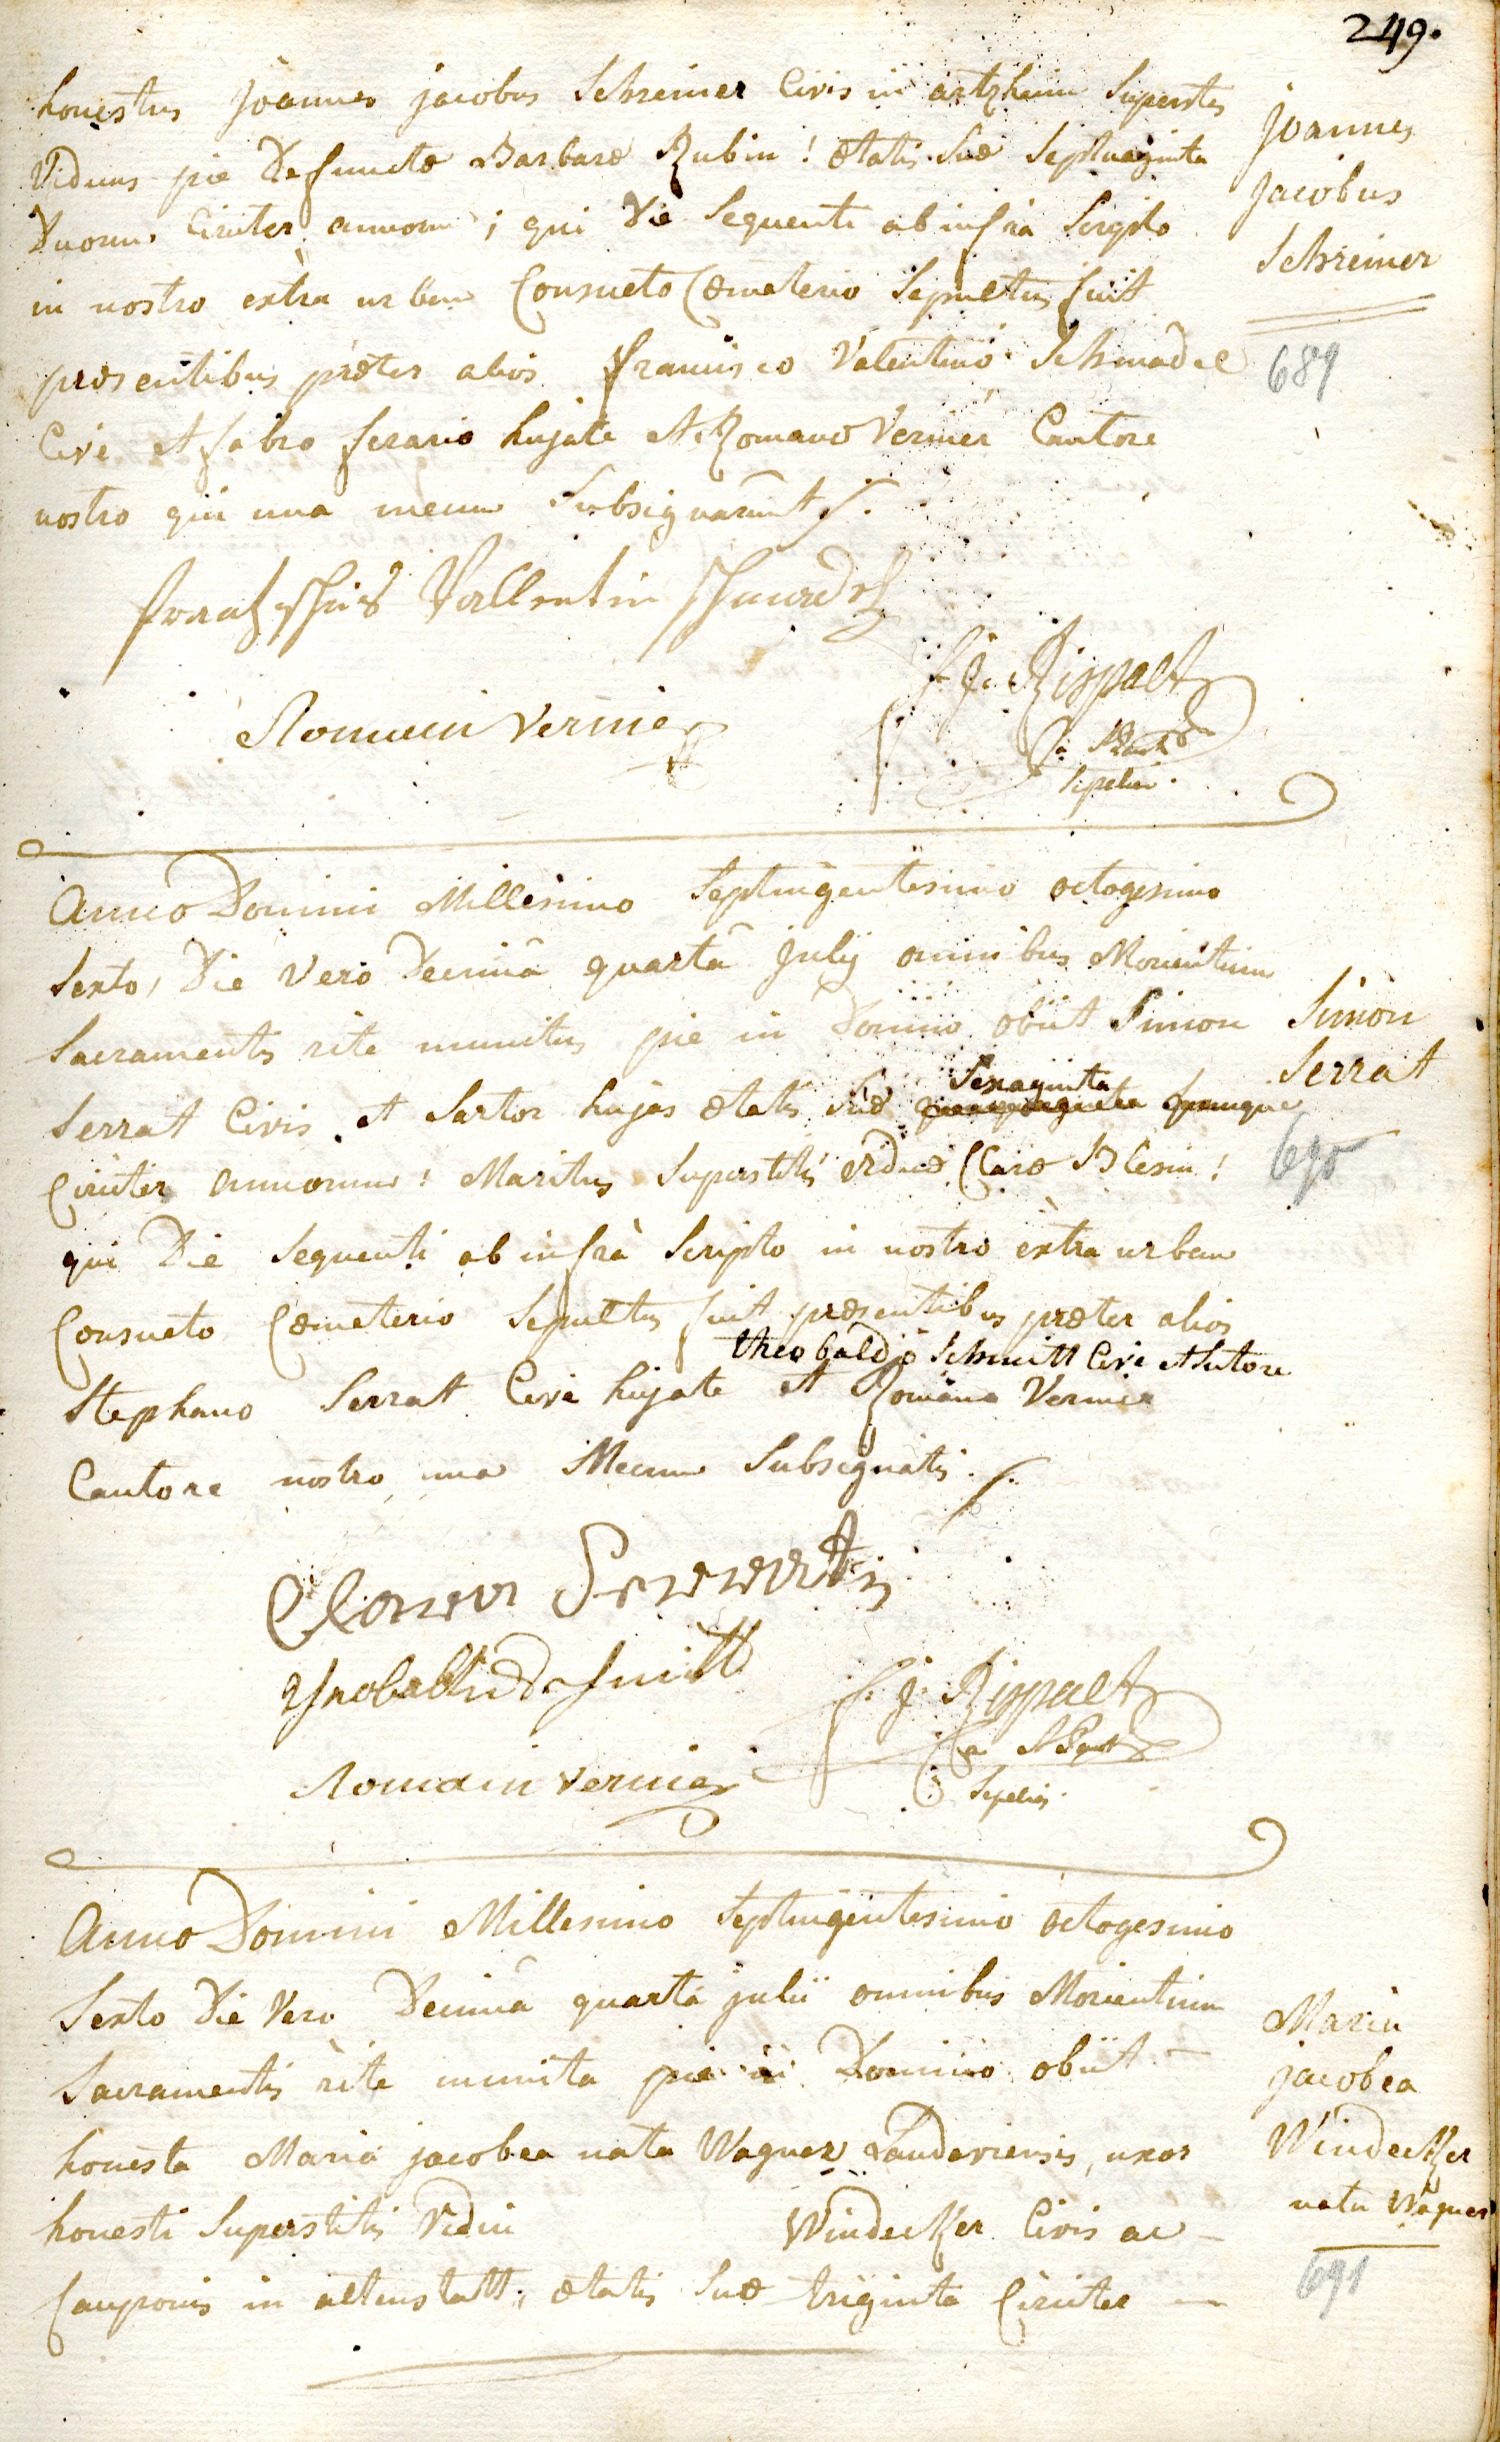 249.
honestus joannes jacobus Schreiner Civis in artzheim Superstes
Viduus pie Defunctæ Barbaræ Rubin! ætatis suæ septuaginta
Duorum Circiter annorum; qui Die Sequenti ab infrà Scripto
in nostro extra urbem Consueto Cœmeterio Sepultus fuit
præsentibus præter alios francisco Valentino Schmadel
Cive et fabro ferario hujate et Romano Vernier Cantore
nostro qui una mecum Subsignarunt
joannes
jacobus
Schreiner
689
Vallentin
Romain Vernier
f. j. Rippalt
Sepelivi.
Anno Domini Millesimo Septingentesimo octogesimo
Sexto, Die Vero Decimâ quartâ julij omnibus Morientium
Sacramentis rite munitus pie in Domino obiit Simon
Sexaginta
Serrat Civis et Sartor hujas ætatis suæ
Circiter annorum! Maritus Superstitis viduæ Claræ Blesin!
qui Die sequenti ab infrà Scripto in nostro èxtra urbem
Consueto Cœmeterio Sepultus fuit præsentibus præter alios
theobaldo Schmitt Cive et Sutore
Stephano Serrat Cive hujate et Romano Vernier
Cantore nostro una Mecum Subsignatis.
Simon
Serrat
690
Romain Vernier
f. j. Rippalt
Sepelivi.
Anno Domini Millesimo Septingentesimo octogesimo
Sexto Die Vero Decimâ quartâ julii omnibus Morientium
Sacramentis rite munita pie in Domino obiit
honesta Maria jacobea nata Wagner Landaviensis, uxor
honesti Superstitis Vidui Windecker Civis ac
Cauponis in altenstatt, ætatis suæ triginta Circiter
Maria
jacobea
Windecker
nata Wagner
691